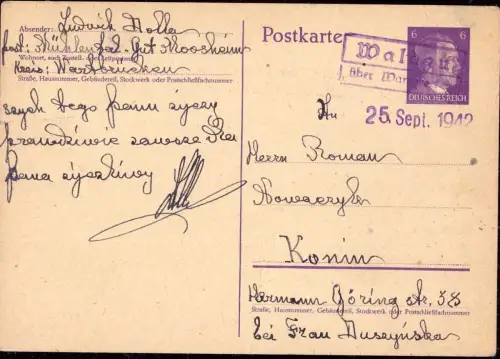 Absender: Ludwik Molle
post: Mühlental Gut Moosheim
Wohnort, auch Zustell- oder Leitpostamt
Kreis: Wartbrücken
Straße, Hausnummer, Gebäudeteil, Stockwerk oder Postschließfachnummer
szych tego panu życzy
prawdziwie zawsze dla
pana życzliwy
Postkarte
6 6
DEUTSCHES REICH
Waldau
über War
25. Sept. 1942
An
Herrn Roman
Nowaczyk
Konin
Hermann Göring str. 38
Straße, Hausnummer, Gebäudeteil, Stockwerk oder Postschließfachnummer
bei Frau Muszyńska